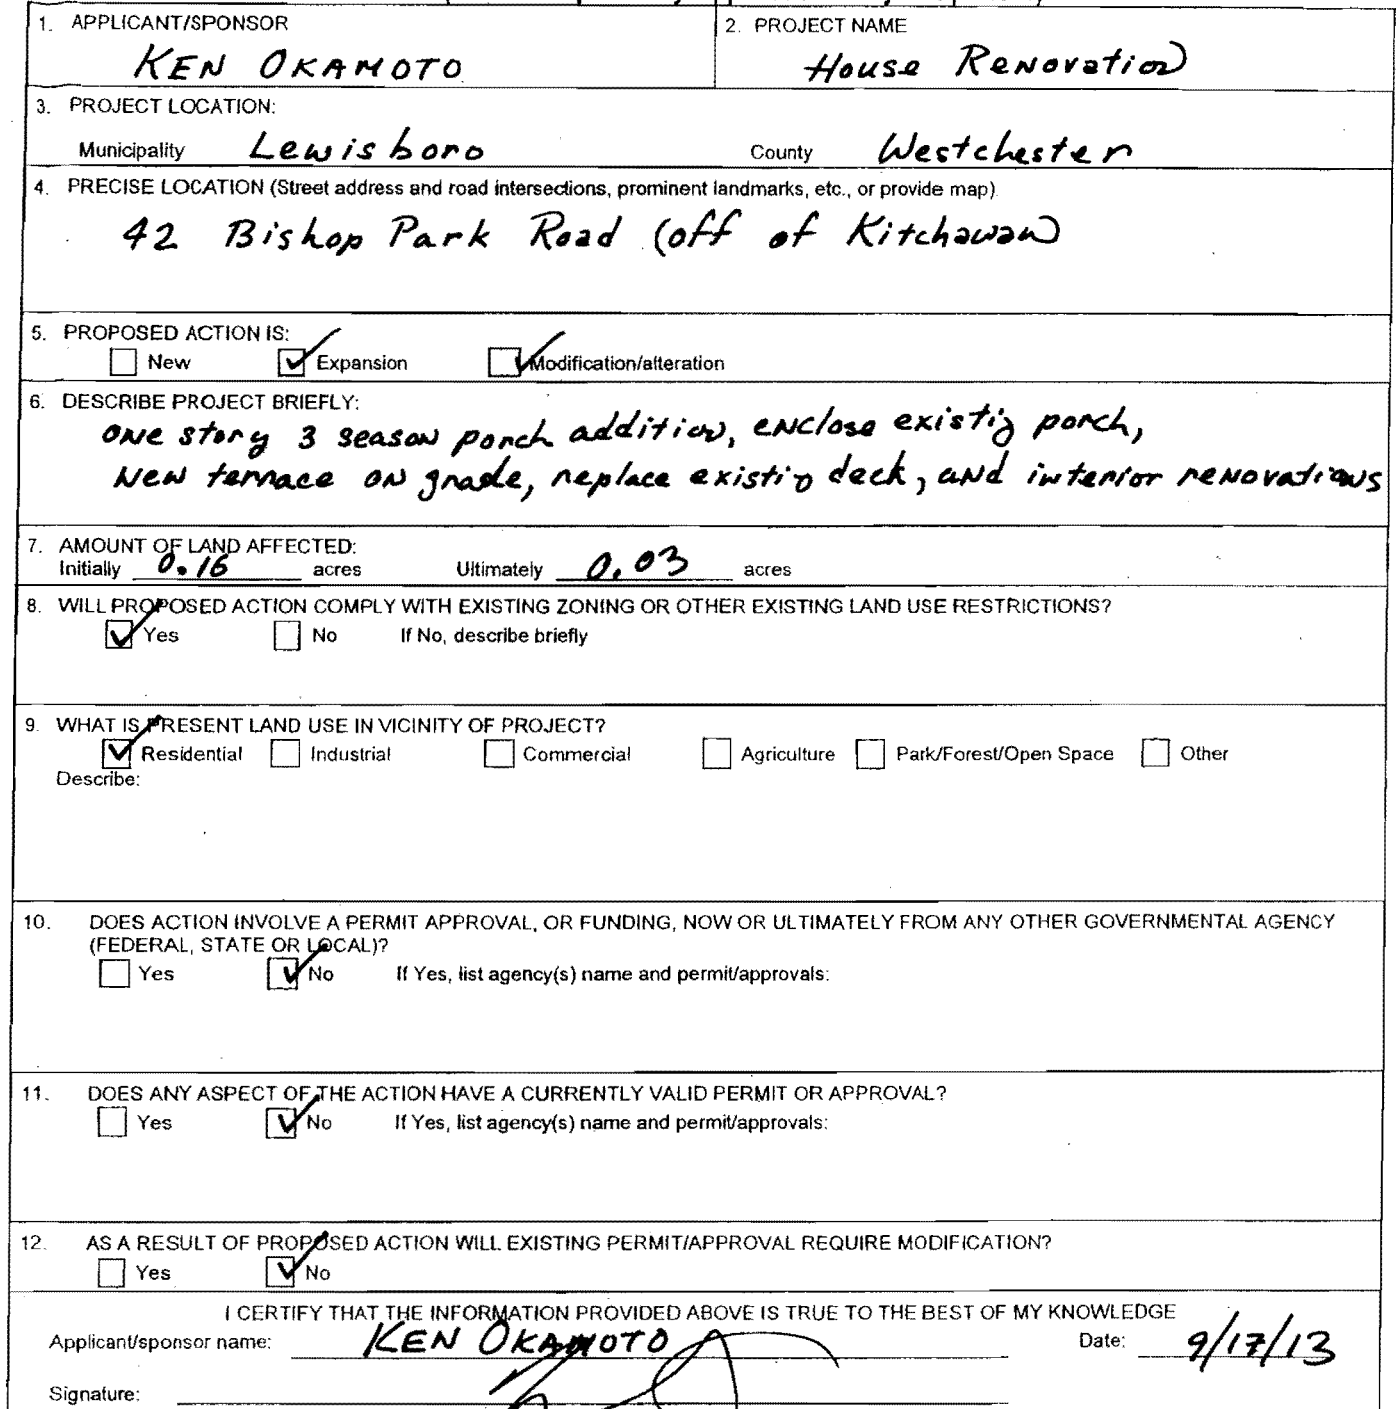 1. APPLICANT/SPONSOR
KEN OKAMOTO
2. PROJECT NAME
House Renovation
3. PROJECT LOCATION:
Municipality Lewisboro County Westchester
4. PRECISE LOCATION (Street address and road intersections, prominent landmarks, etc., or provide map)
42 Bishop Park Road (off of Kitchawan)
5. PROPOSED ACTION IS:
New Expansion Modification/alteration
6. DESCRIBE PROJECT BRIEFLY:
one story 3 season porch addition, enclose existig porch,
New terrace on grade, replace existig deck, and interior renovations
7. AMOUNT OF LAND AFFECTED:
Initially 0.16 acres Ultimately 0.03 acres
8. WILL PROPOSED ACTION COMPLY WITH EXISTING ZONING OR OTHER EXISTING LAND USE RESTRICTIONS?
Yes No If No, describe briefly
9. WHAT IS PRESENT LAND USE IN VICINITY OF PROJECT?
Residential Industrial Commercial Agriculture Park/Forest/Open Space Other
Describe:
10. DOES ACTION INVOLVE A PERMIT APPROVAL, OR FUNDING, NOW OR ULTIMATELY FROM ANY OTHER GOVERNMENTAL AGENCY
(FEDERAL, STATE OR LOCAL)?
Yes No If Yes, list agency(s) name and permit/approvals:
11. DOES ANY ASPECT OF THE ACTION HAVE A CURRENTLY VALID PERMIT OR APPROVAL?
Yes No If Yes, list agency(s) name and permit/approvals:
12. AS A RESULT OF PROPOSED ACTION WILL EXISTING PERMIT/APPROVAL REQUIRE MODIFICATION?
Yes No
I CERTIFY THAT THE INFORMATION PROVIDED ABOVE IS TRUE TO THE BEST OF MY KNOWLEDGE
Applicant/sponsor name: KEN OKAMOTO Date: 9/17/13
Signature: